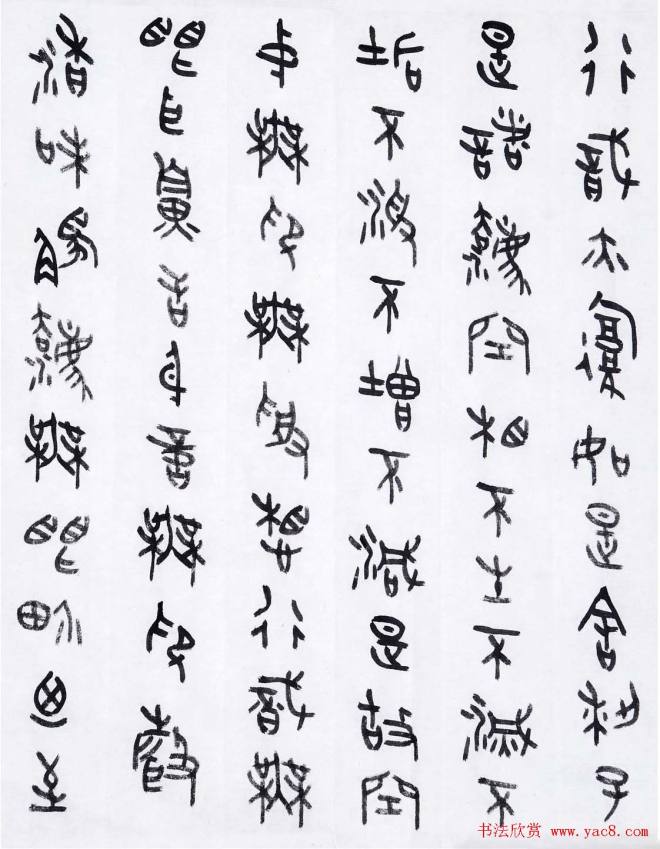 行識亦復如是舍利子
是諸法空相不生不滅不
垢不淨不增不減是故空
中無色無受想行識無
眼耳鼻舌身意無色聲
香味觸法無眼界乃至
书法欣赏 www.yac8.com